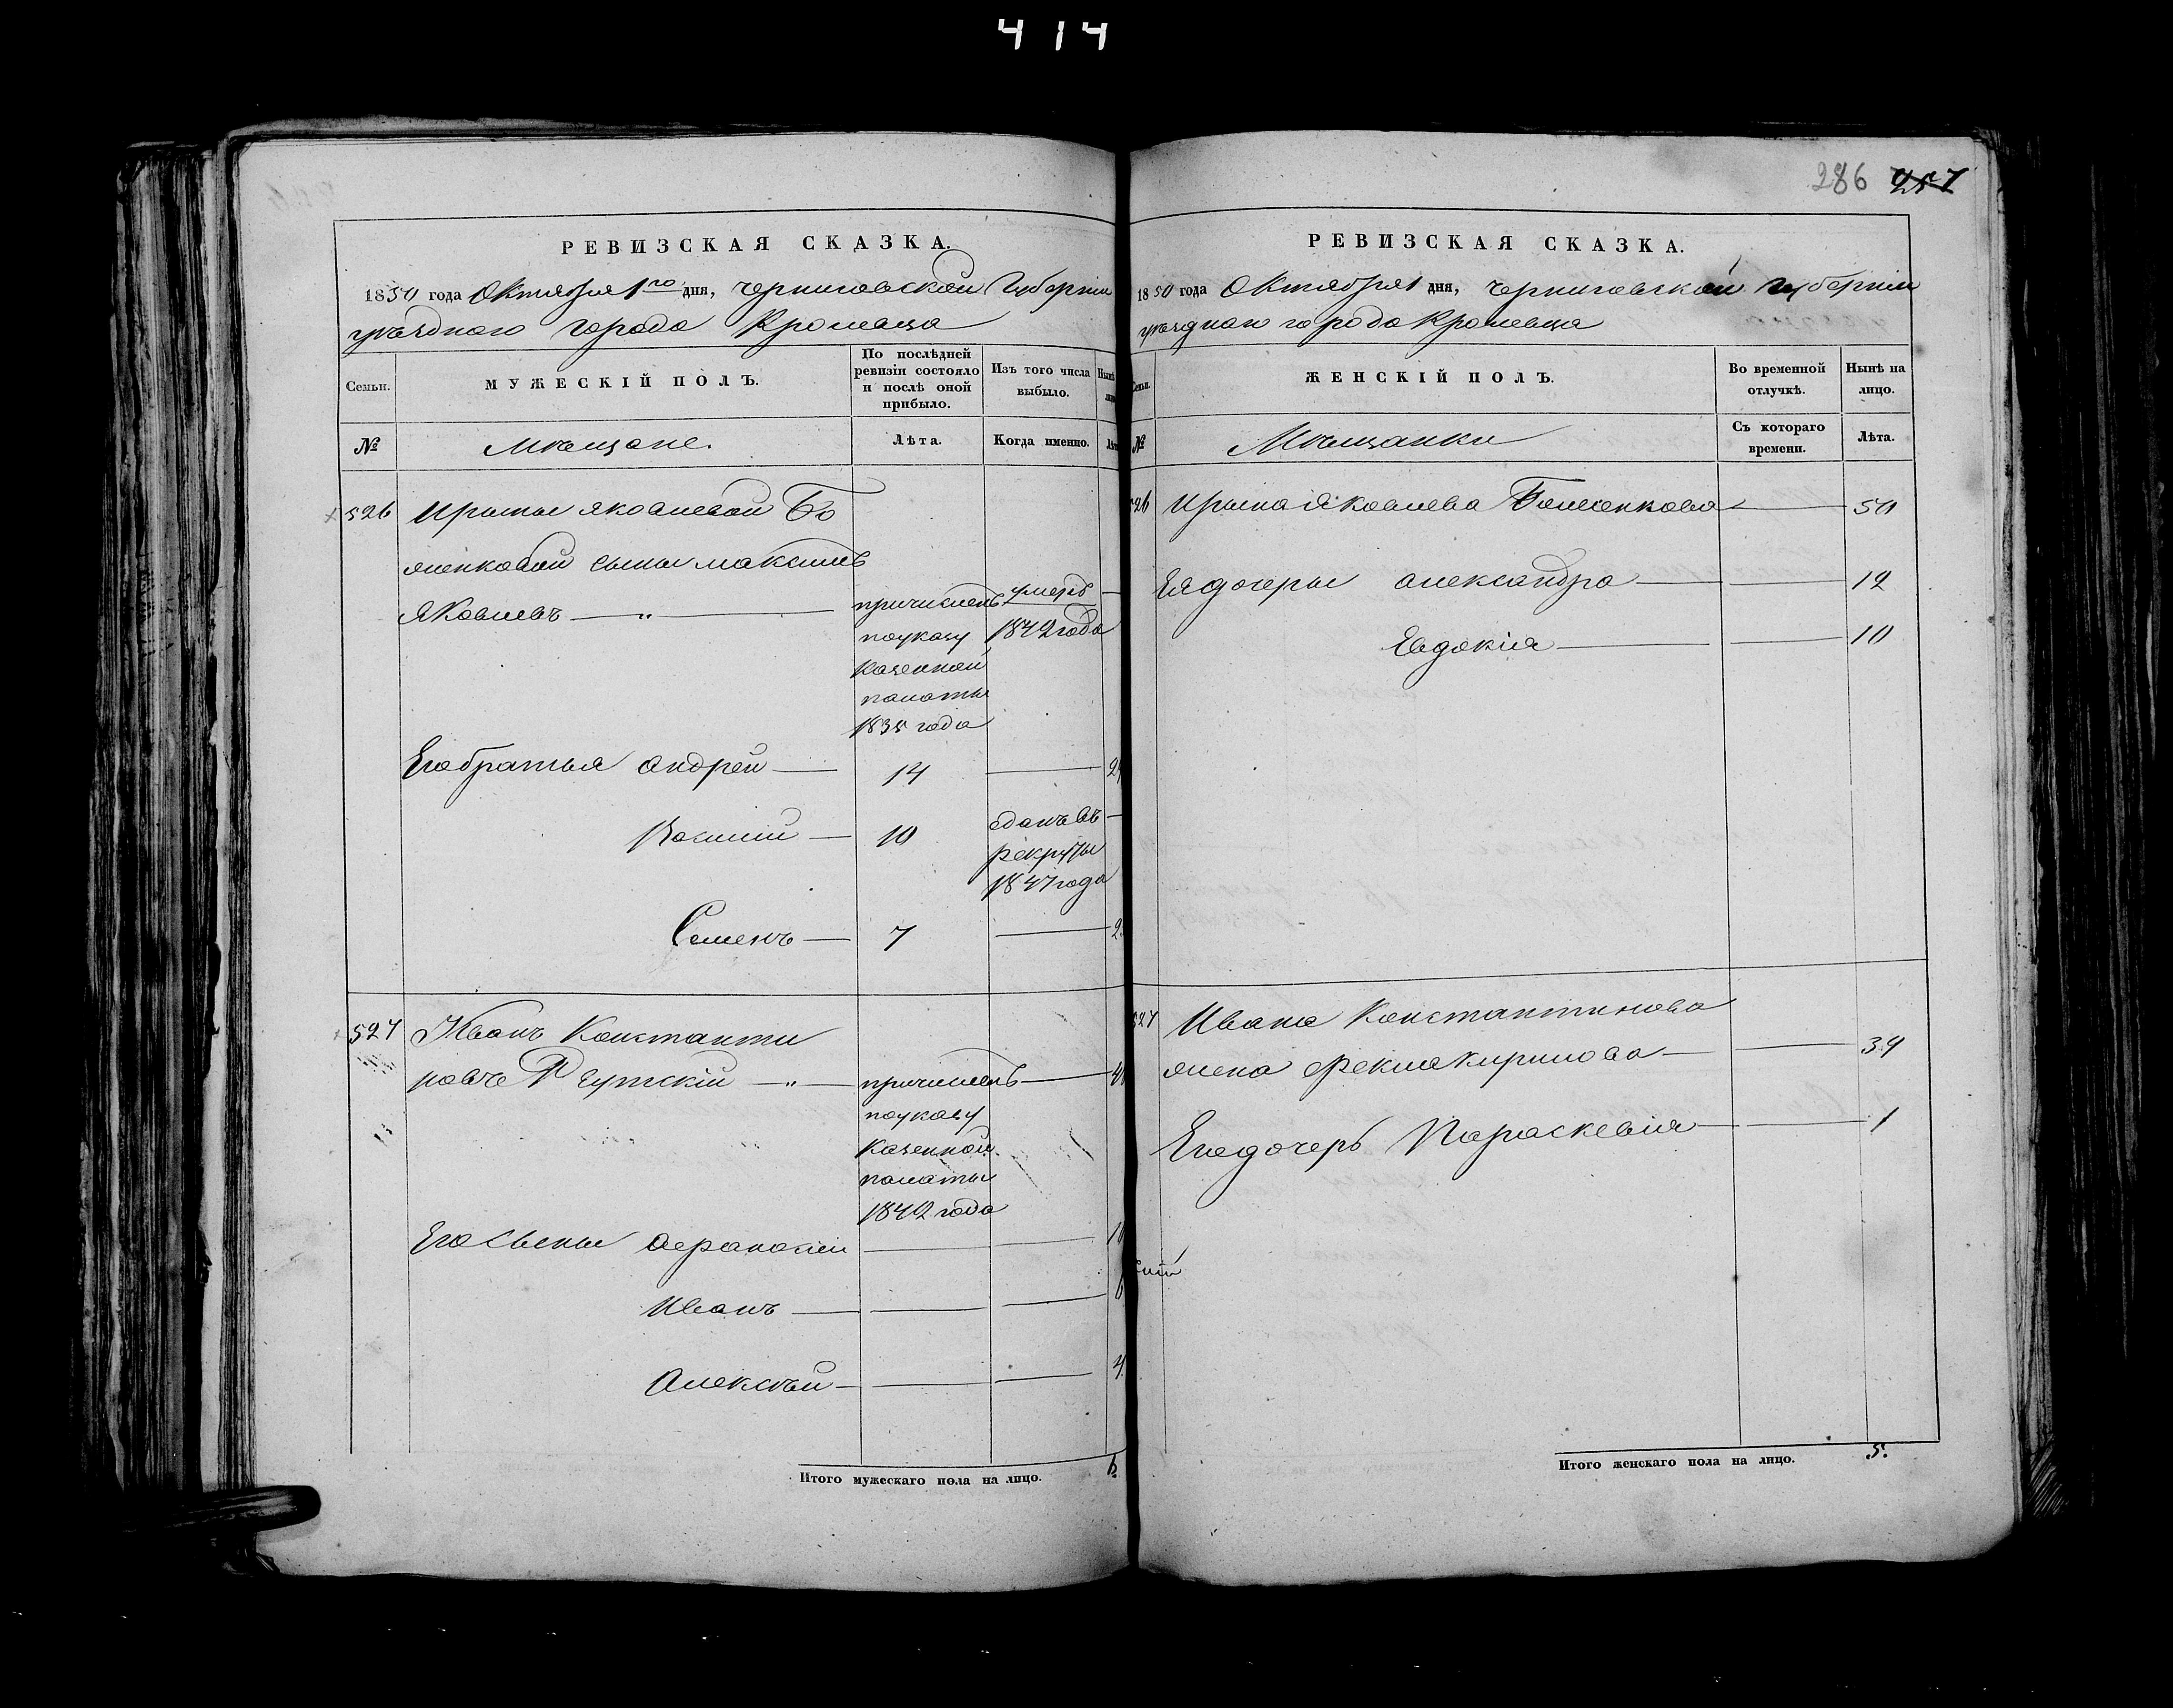 414
286 257
РЕВИЗСКАЯ СКАЗКА.
1850 года Октября 1го дня, Черниговской Губернии
уѣзднаго города Кролевца
Семьи.
МУЖЕСКІЙ ПОЛЪ.
По послѣдней
ревизіи состояло
и послѣ оной
прибыло.
Изъ того числа
выбыло.
Нынѣ
№
Мѣщане.
Лѣта.
Когда именно.
526 Ирины Яковлевой Бо
женковой сыны Максимъ
Яковлевъ — " — причисленъ умеръ —
поуказу 1842 года
Казенной
палаты
1835 года
Его братья Андрей — 14 —
Василий — 10 сданъ въ —
рекруты
1847 года
Семенъ — 7 —
527 Иванъ Константи
новъ Реутскій — " — причисленъ —
поуказу
Казенной
палаты
1842 года
Его Сыны Афанасий — — 10
Иванъ — — — 6
Алексѣй — — — 4
Итого мужескаго пола на лицо. 6.
РЕВИЗСКАЯ СКАЗКА.
1850 года Октября 1 дня, Черниговской Губернии
уѣзднаго города Кролевца
ЖЕНСКІЙ ПОЛЪ.
Во временной
отлучкѣ.
Нынѣ на
лицо.
№
Мѣщанки
Съ котораго
времени.
Лѣта.
526 Ирина Яковлева Боженкова — 50
Ея дочеры Александра — — 12
Евдокія — — 10
527 Ивана Константинова
жена Фекла Кирилова — — 39
Его дочерь Параскевія — — 1
Итого женскаго пола на лицо. 5.